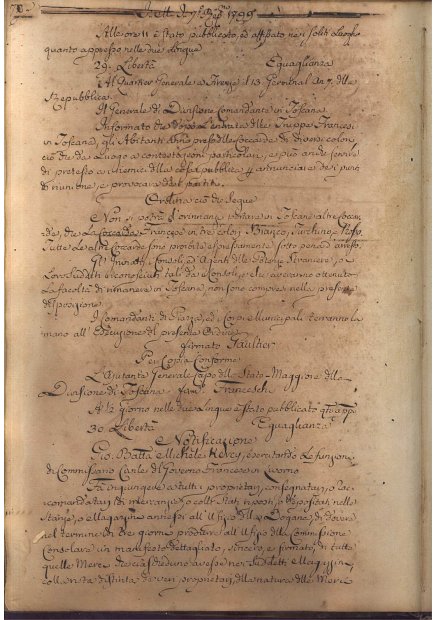 Alle ore 11 è stato pubblicato, ed affisso nei soliti Luoghi
quanto appresso nelle due Lingue
29. Libertà Eguaglianza
Al Quartier Generale a Firenze 13 Germinal An. 7. della
Repubblica
Il Generale di Divisione Comandante in Toscana
Informato che dopo L'entrata delle Truppe Francesi
in Toscana, gli Abitanti Anno preso delle Coccarde di diversi colori
ciò che da Luogo a contestazioni particolari, e può anche servire
di pretesto ai nemici della cosa pubblica annunciare dei punti
di riunione, e provocare dei partiti.
Ordina ciò che segue
Non si potrà d'ora in avanti portare in Toscana altre Coccar
de, che La Coccarda Francese in tre Colori Bianco, Turchino, e Rosso.
Tutte Le altre Coccarde sono proibite espressamente sotto pena d'arresto.
Gl' Inviati, i Consoli, o Agenti delle Potenze Straniere, o
Loro Sudditi riconosciuti tali da i Consoli, e che averanno ottenuto
La facoltà di rimanere in Toscana, non sono compresi nella presente
disposizione.
I Comandanti di Piazza, ed i Corpi Municipali terranno la
mano all' Esecuzione del presente Ordine
firmato Gaultier
Per Copia Conforme
L'Aiutante Generale Capo dello Stato-Maggiore della
Divisione di Toscana firm. Franceschi
A ½ giorno nelle due Lingue è stato pubblicato q.to app.
30. Libertà Eguaglianza
Notificazione
Gio. Batta Michele Kercy, esercitando Le funzioni
di Commissario Civile del Governo Francese in Livorno
Si ingiunge a tutti i proprietari, consegnatari, o rac
comandatari di mercanzie, o colli stati riposti, o depositati nelle
Stanze, o Magazzini annessi all' Ufizio della Dogana, di dovere
nel termine di tre giorni produrre all' Ufizio della Commissione
Consolare un manifesto dettagliato, sincero, e firmato, di tutte
quelle Merci che ciascheduno avesse nei suddetti Magazzini
colla nota distinta dei veri proprietari, della natura delle Merci